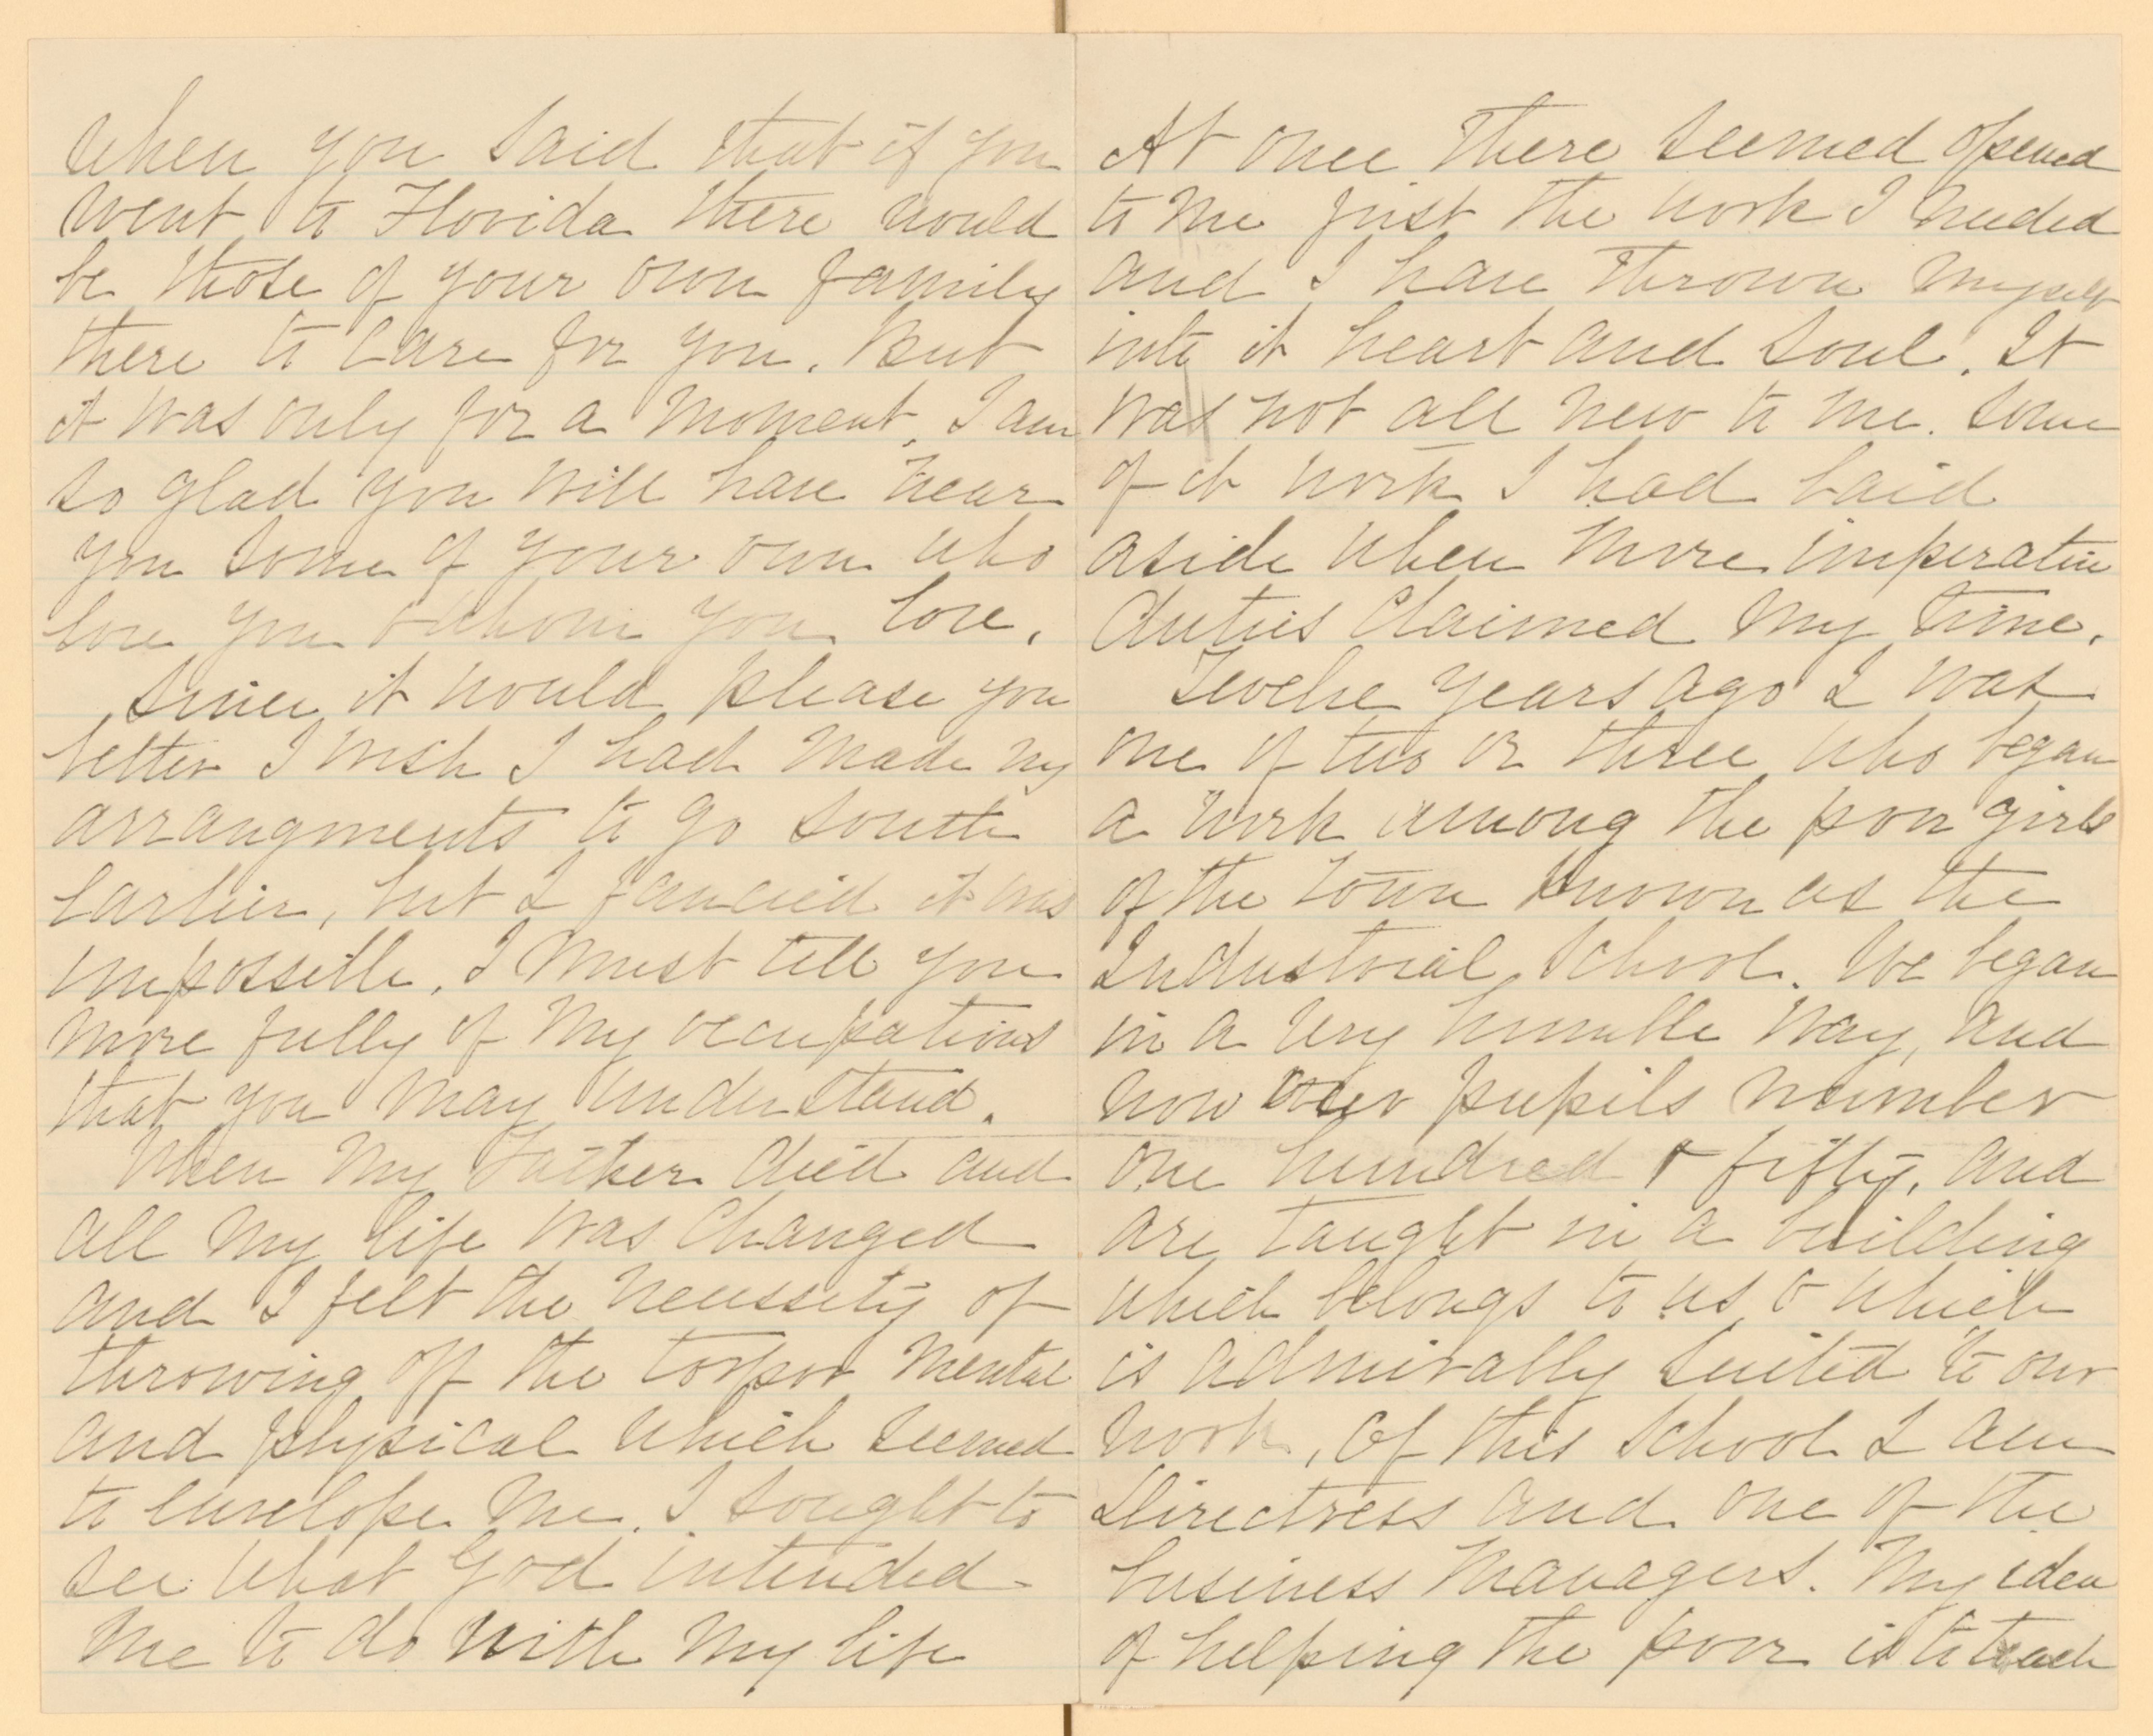 When you said that if you
went to Florida there would
be those of your own family
there to care for you. But
it was only for a moment. I am
so glad you will have near
you some of your own who
love you & whom you love.
Since it would please you
better I wish I had made my
arrangments to go south
earlier, but I fancied it was
impossible. I must tell you
more fully of my occupations
that you may understand.
When my Father died and
all my life was changed
and I felt the necessity of
throwing off the torpor mental
and physical which seemed
to envelope me. I sought to
see what God intended
me to do with my life
At once there seemed opened
to me just the work I needed
and I have thrown myself
into it heart and soul. It
was not all new to me. Some
of it work I had laid
aside when more imperative
duties claimed my time.
Twelve years ago I was
one of two or three who began
a work among the poor girls
of the town known as the
Industrial School. We began
in a very humble way, and
now our pupils number
one hundred & fifty, and
are taught in a building
which belongs to us & which
is admirably suited to our
work. Of this School I am
Directress and one of the
business managers. My idea
of helping the poor is to teach